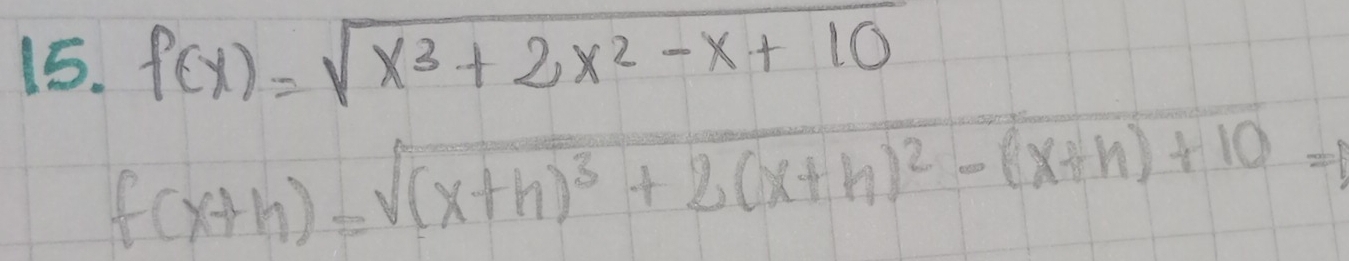 15. f(x) = √x³ + 2x² - x + 10
f(x+h) = √(x+h)³ + 2(x+h)² - (x+h) + 10 =